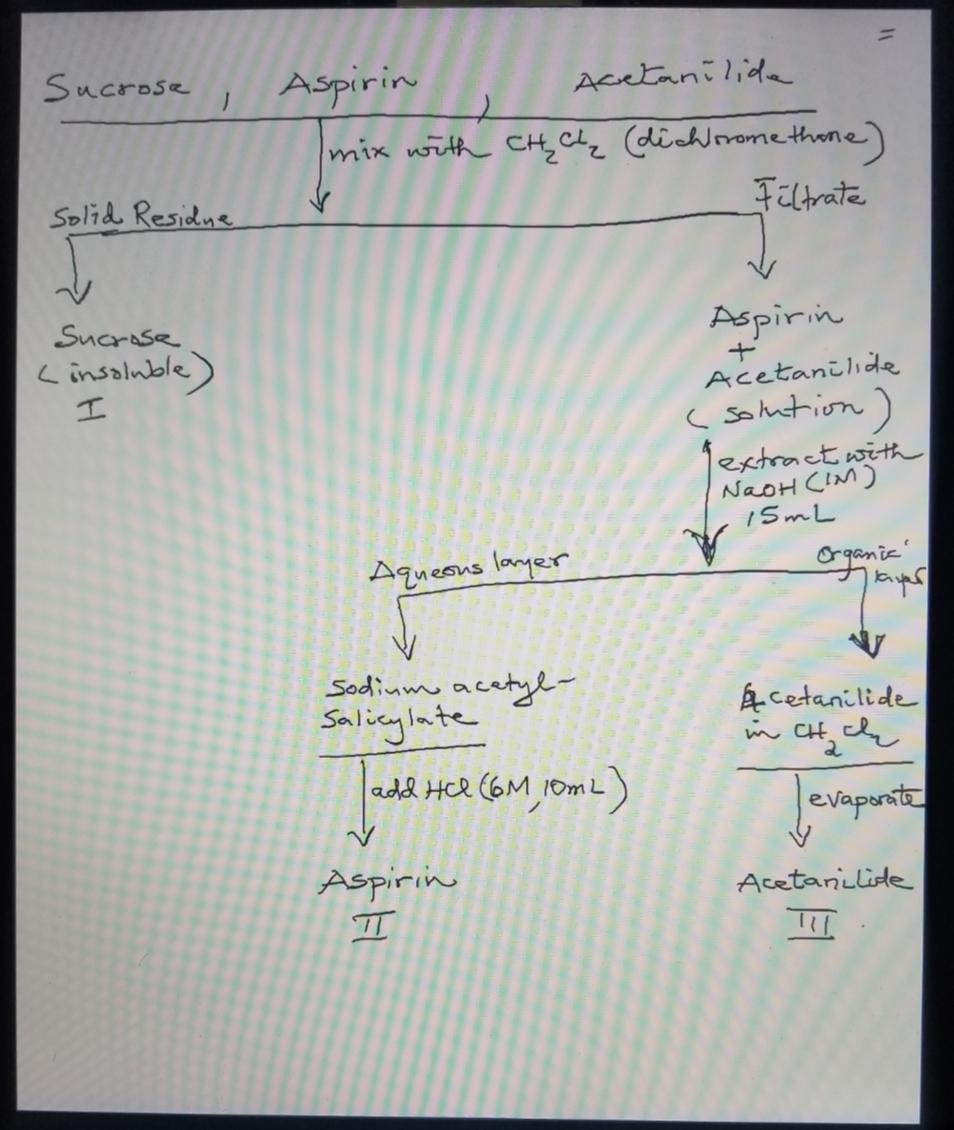 =
Sucrose , Aspirin , Acetanilide
mix with CH2Cl2 (dichloromethane)
Solid Residue
Filtrate
Sucrose
(insoluble)
I
Aspirin
+
Acetanilide
(solution)
extract with
NaOH (1M)
15mL
Aqueous layer
Organic
layer
Sodium acetyl-
Salicylate
Acetanilide
in CH2Cl2
add HCl (6M, 10mL)
evaporate
Aspirin
II
Acetanilide
III